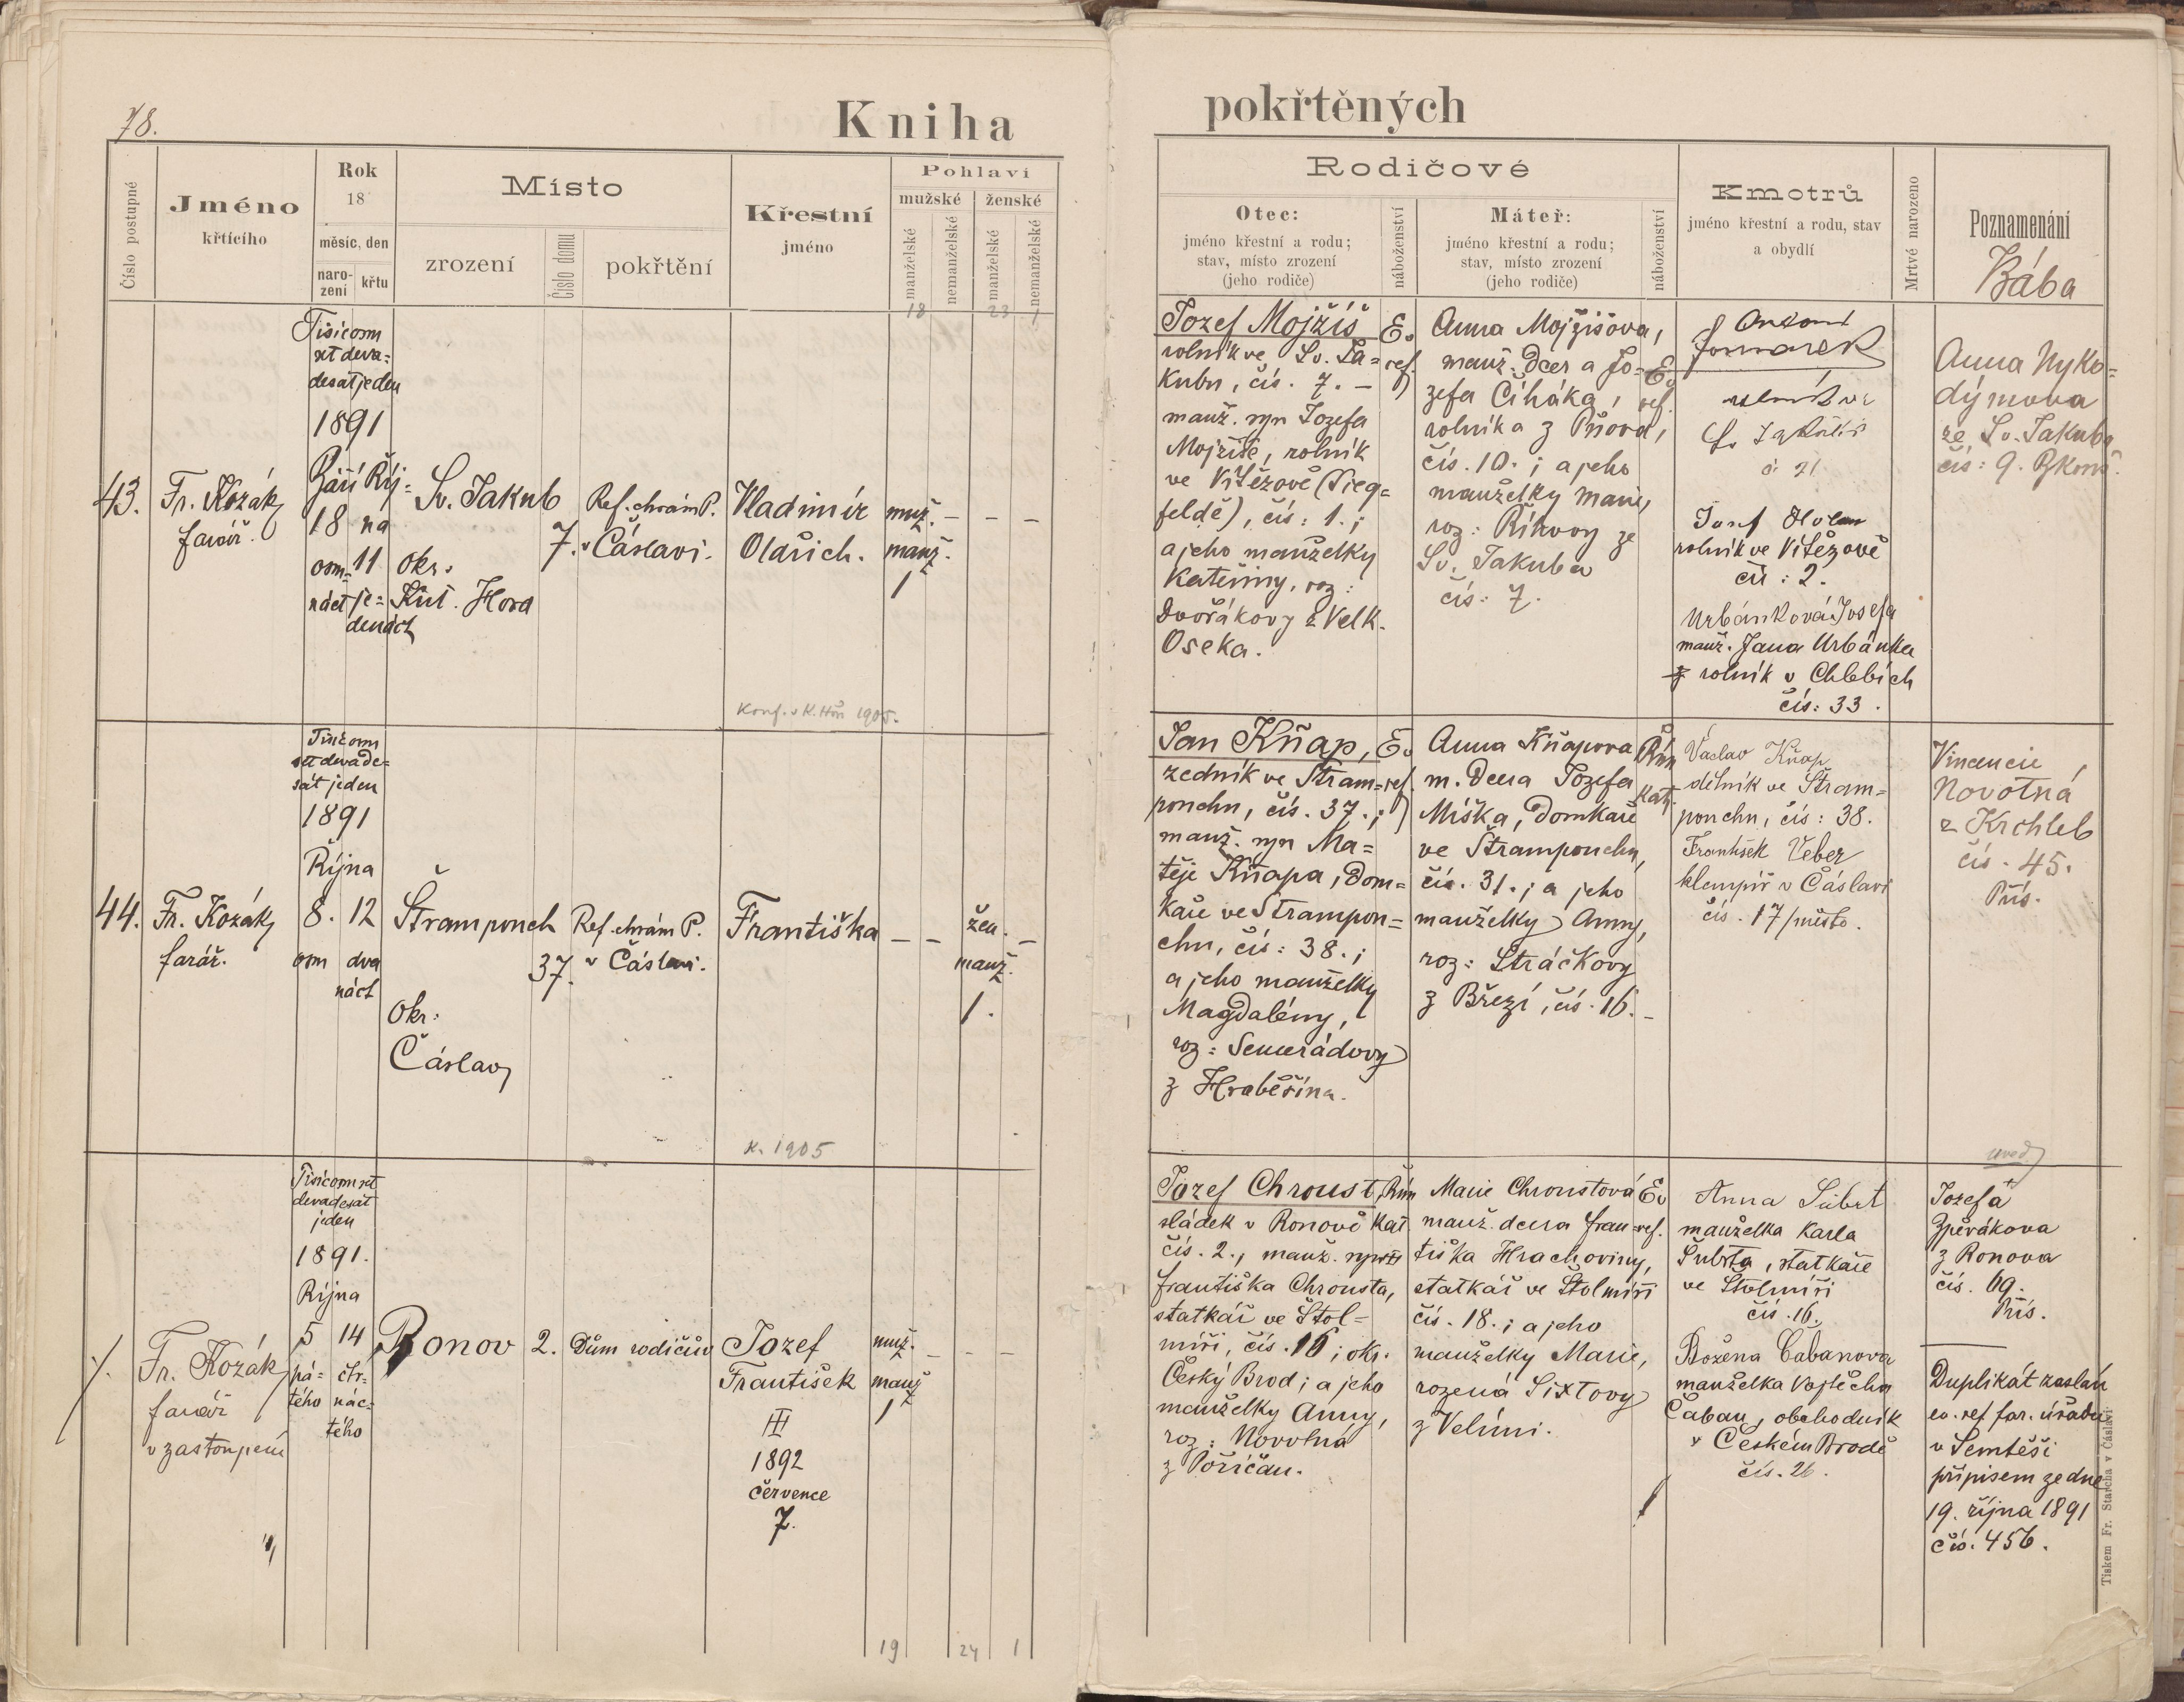 78.
Kniha
Číslo postupné
Jméno
křtícího
Rok
18
měsíc, den
naro-
zení
křtu
Místo
zrození
Číslo domu
pokřtění
Křestní
jméno
Pohlaví
mužské
ženské
manželské
nemanželské
manželské
nemanželské
18
23
1
43.
Fr. Kozák
farář.
Tisícosm
set deva=
desát jeden
1891
Září Říj=
18 na
osm= 11
náct je=
denáct
Sv. Jakub
7.
okr.
Kut. Hora
Ref. chrám P.
v Čáslavi.
Vladimír
Oldřich.
muž. – – –
manž.
1
Konf. v K. Hoře 1905.
44.
Fr. Kozák
farář.
Tisícosm
set devade=
sát jeden
1891
Října
8. 12
osm dva
náct
Štrampouch
37.
Okr:
Čáslav
Ref. chrám P.
v Čáslavi.
Františka
– – žen. –
manž.
1.
K. 1905
/.
Fr. Kozák
farář
v zastoupení
Tisícosmset
devadesát
jeden
1891.
Října
5 14
pá= čtr=
tého nác=
tého
Ronov 2.
Dům rodičův
Jozef
František
III
1892
července
7.
muž. – – –
manž
1
19
24
1
pokřtěných
Rodičové
Otec:
jméno křestní a rodu;
stav, místo zrození
(jeho rodiče)
náboženství
Máteř:
jméno křestní a rodu;
stav, místo zrození
(jeho rodiče)
náboženství
Kmotrů
jméno křestní a rodu, stav
a obydlí
Mrtvé narozeno
Poznamenání
Bába
Jozef Mojžíš
rolník ve Sv. Ja=
kubu, čís. 7. –
manž. syn Jozefa
Mojžíše, rolník
ve Vítězově (Sieg=
feldě), čís: 1.;
a jeho manželky
Kateřiny, roz:
Dvořákovy z Velk.
Oseka.
Ev
ref.
Anna Mojžíšova,
manž. dcer a Jo=
zefa Čiháka,
rolníka z Pňova,
čís. 10.; a jeho
manželky Marie,
roz: Říhovy ze
Sv. Jakuba
čís: 7.
Ev
ref.
Antoni
rolník ve
21
Josef
rolník ve Vítězově
čís: 2.
Urbánková Josefa
manž. Jana Urbánka
z rolník v Chlebích
čís: 33.
Anna Nyko=
dýmova
ze Sv. Jakuba
čís: 9.
Jan Kňap,
zedník ve Štram=
pouchu, čís. 37.;
manž. syn Ma=
těje Kňapa, dom=
kaře ve Štrampou=
chu, čís: 38.;
a jeho manželky
Magdalény,
roz: Semerádovy
z Hraběšína.
Ev
ref.
Anna Kňapova
m. dcera Jozefa
Míška, domkaře
ve Štrampouchu,
čís. 31.; a jeho
manželky Anny,
roz: Stráčkovy
z Březí, čís. 16. –
Řím
kat.
Václav Kňap
dělník ve Štram=
pouchu, čís: 38.
František Veber
klempíř v Čáslavi
čís. 17/město.
Vincencie
Novotná
z Krchleb
čís. 45.
Přís.
Jozef Chroust,
sládek v Ronově
čís. 2., manž. syn
Františka Chrousta,
statkář ve Štol=
míři, čís. 16; okr.
Český Brod; a jeho
manželky Anny,
roz: Novotná
z Poříčan.
Řím
kat
Marie Chroustová
manž. dcera Fran=
tiška Hrachoviny,
statkář ve Štolmíři
čís. 18.; a jeho
manželky Marie,
rozená Sixtovy
z Velimi.
Ev
ref.
Anna Šubrt
manželka Karla
Šubrta, statkáře
ve Štolmíři
čís. 16.
Božena Čabanova
manželka Vojtěcha
Čaban, obchodník
v Českém Brodě
čís. 26.
Jozefa
Zpěvákova
z Ronova
čís. 69.
Přís.
Duplikát zaslán
ev. ref. far. úřadu
v Semtěši
přípisem ze dne
19. října 1891
čís. 456.
Tiskem Fr. Starcha v Čáslavi.